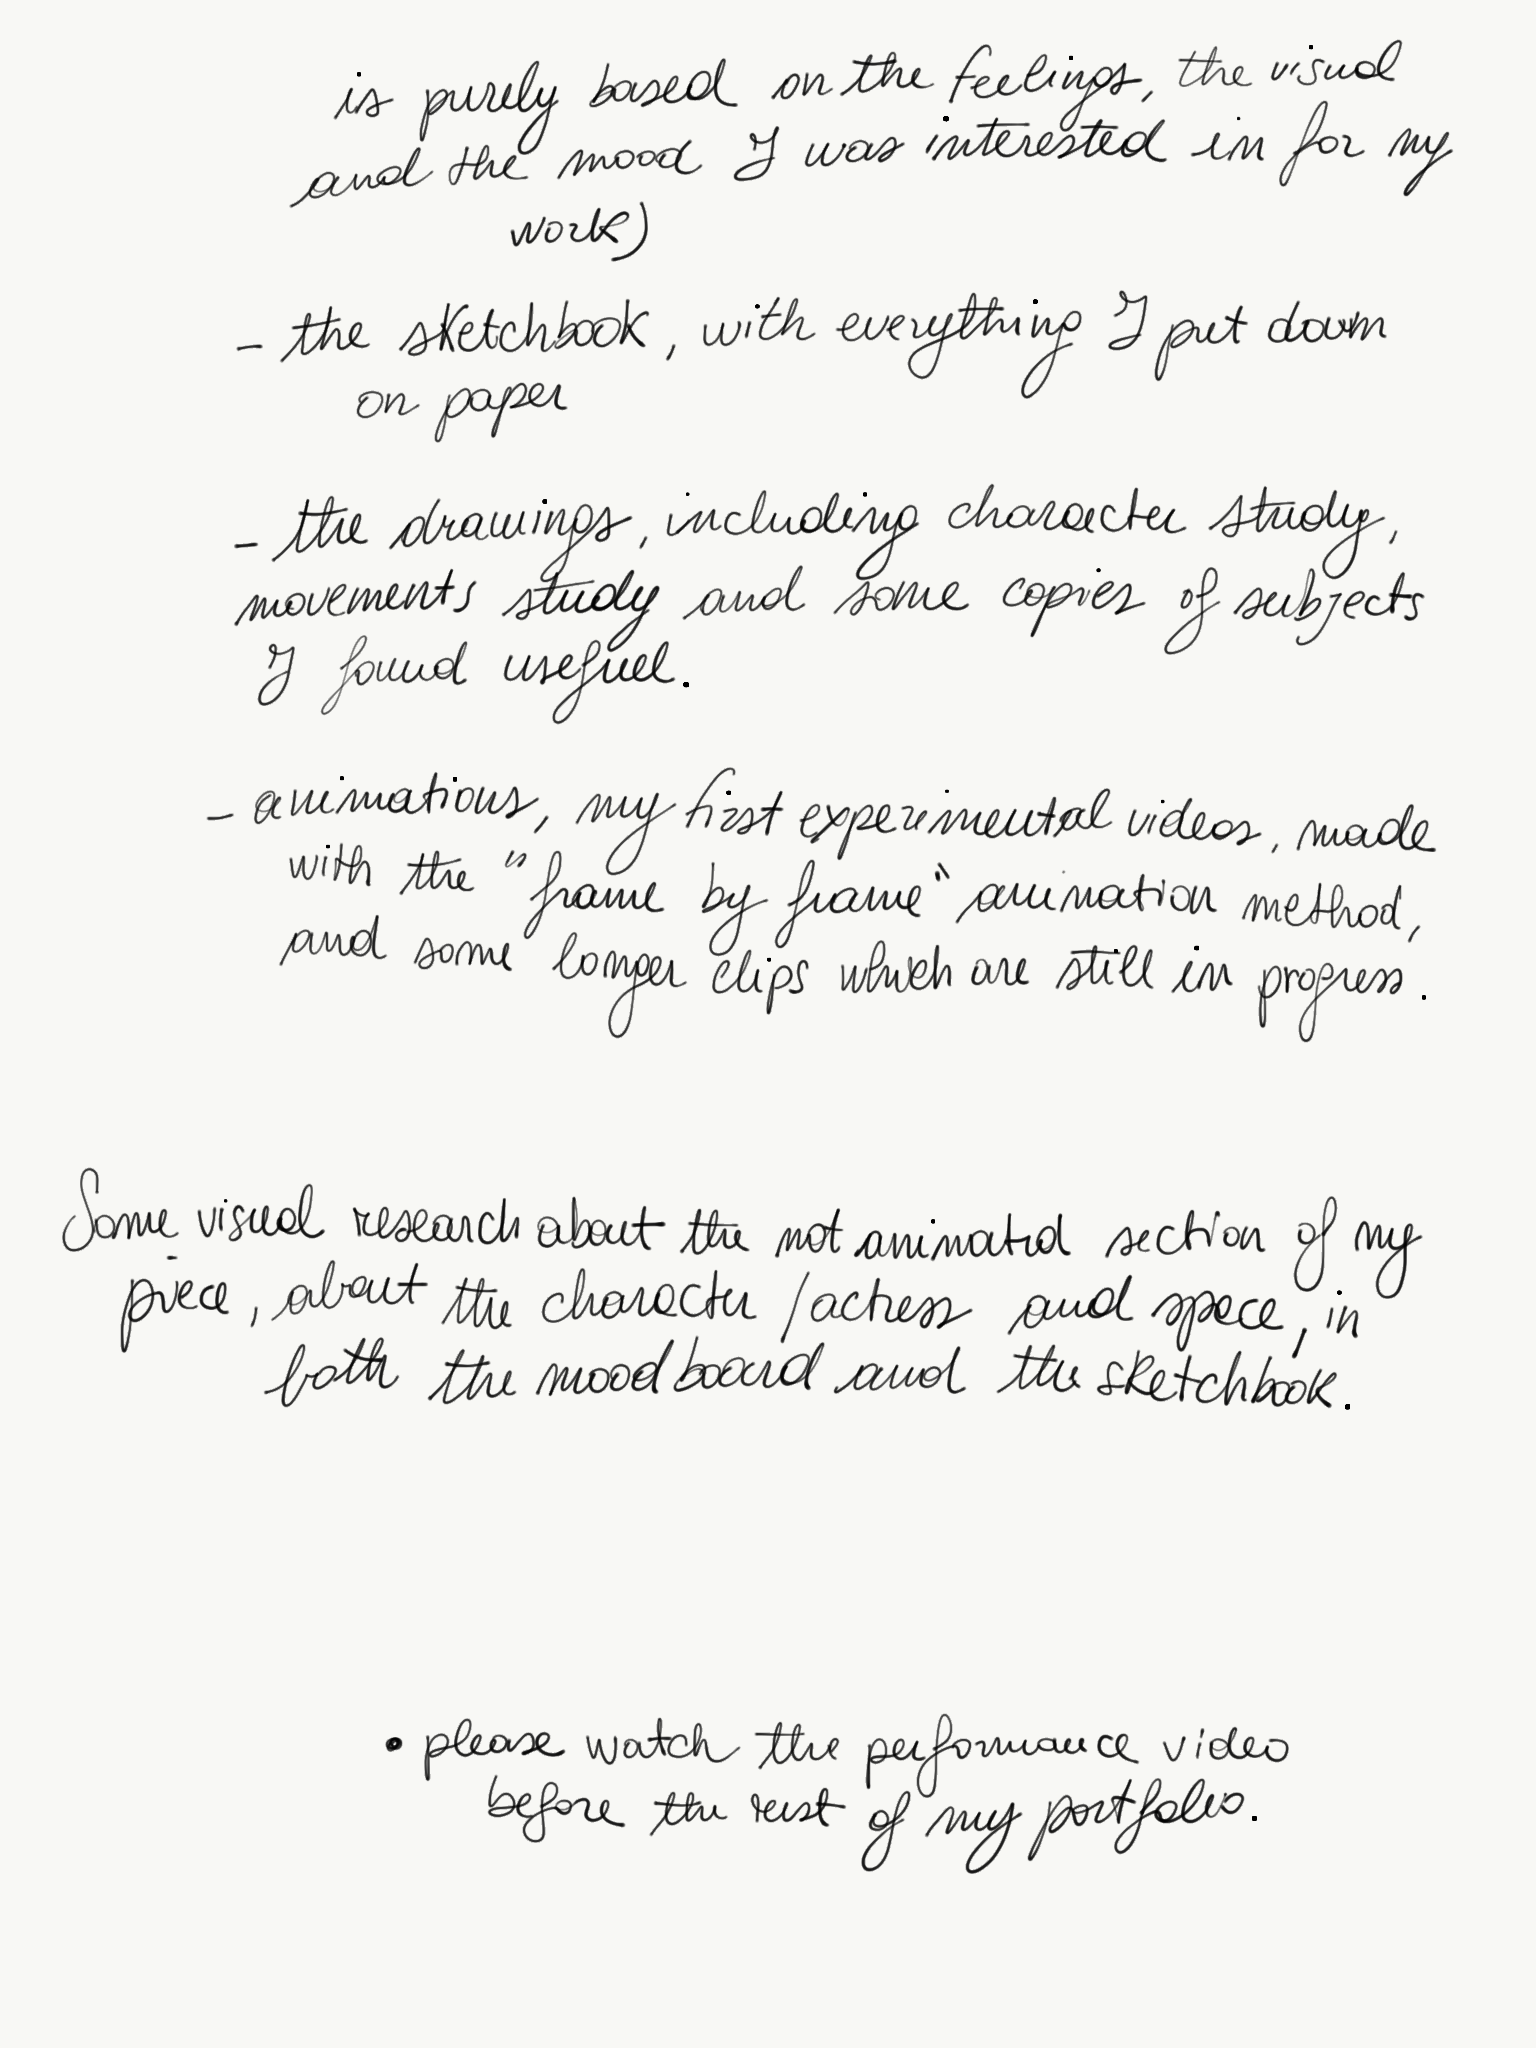 is purely based on the feelings, the visual
and the mood I was interested in for my
work)
- the sketchbook, with everything I put down
on paper
- the drawings, including character study,
movements study and some copies of subjects
I found useful.
- animations, my first experimental videos, made
with the "frame by frame" animation method,
and some longer clips which are still in progress.
Some visual research about the not animated section of my
piece, about the character/actress and space, in
both the moodboard and the sketchbook.
• please watch the performance video
before the rest of my portfolio.